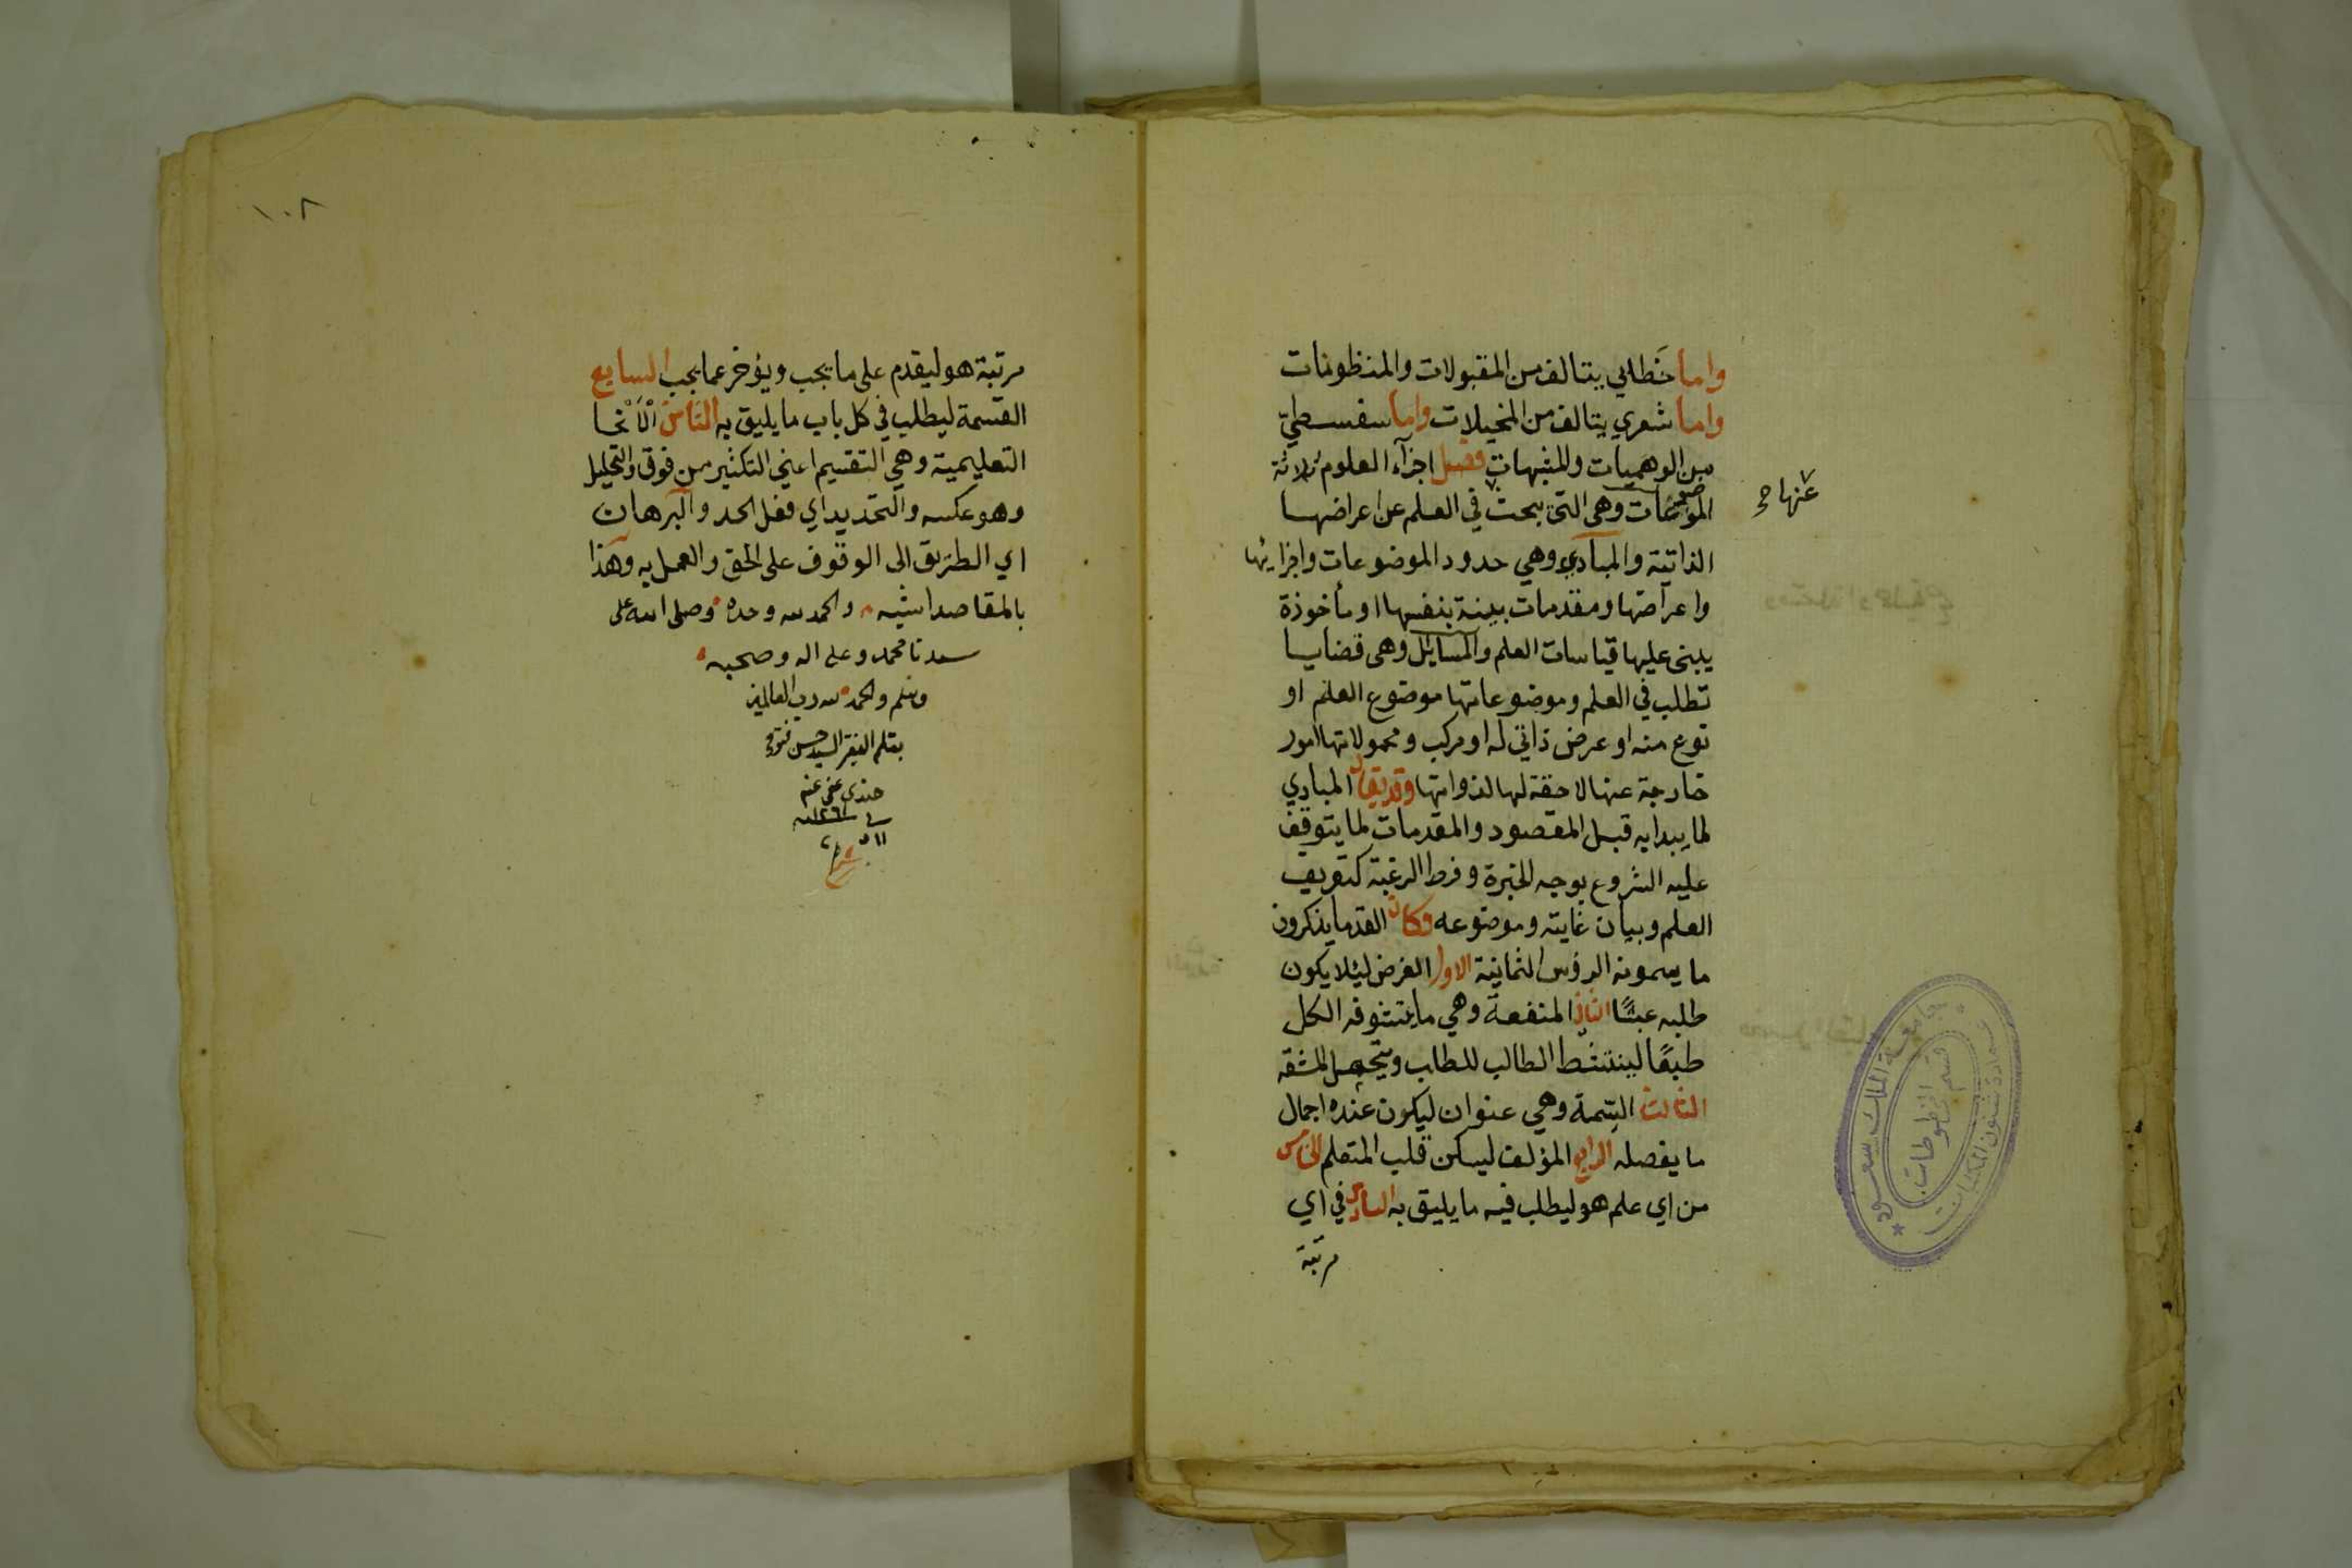 واما خَطابي يتالف من المقبولات والمنظونات
واما شعري يتالف من المخيلات واما سفسطيّ
من الوهميات والمشبهات فصل اجزآء العلوم ثلاثة
الموضوعات وهي التي يبحث في العلم عن اعراضها
عنها صح
الذاتية والمبادي وهي حدود الموضوعات واجزايها
واعراضها ومقدمات بينة بنفسها او مأخوذة
يبنى عليها قياسات العلم والمسايل وهي قضايا
تطلب في العلم وموضوعاتها موضوع العلم او
نوع منه او عرض ذاتي له او مركب ومحمولاتها امور
خارجة عنها لاحقة لها لذواتها وقد يقال المبادي
لما يبدا به قبل المقصود والمقدمات لما يتوقف
عليه الشروع بوجه الخبرة وفرط الرغبة كتعريف
العلم وبيان غايته وموضوعه وكان القدما يذكرون
ما يسمونه الرؤس الثمانية الاول الغرض ليئلا يكون
طلبه عبثًا الثاني المنفعة وهي ما يتشوفه الكل
طبعًا لينتشط الطالب للطلب ويتحمل المشقه
الثالث السِّمة وهي عنوان ليكون عنده اجمال
ما يفصله الرابع المؤلف ليسكن قلب المتعلم الخامس
من اي علم هو ليطلب فيه ما يليق به السادس في اي
مرتبة
جامعة الملك سعود
قسم المخطوطات
عمادة شئون المكتبات
١٠٨
مرتبة هو ليقدم على ما يجب ويؤخر عما يجب السابع
القسمة ليطلب في كل باب ما يليق به الثامن الانحا
التعليمية وهي التقسيم اعني التكثير من فوق والتحليل
وهو عكسه والتحديد اي فعل الحد والبرهان
اي الطريق الى الوقوف على الحق والعمل به وهذا
بالمقاصد اشبه والحمد لله وحده وصلى الله على
سيدنا محمد وعلى اله وصحبه
وسلم والحمد لله رب العالمين
بقلم الفقير السيد حسن فتوح
عفي عنه